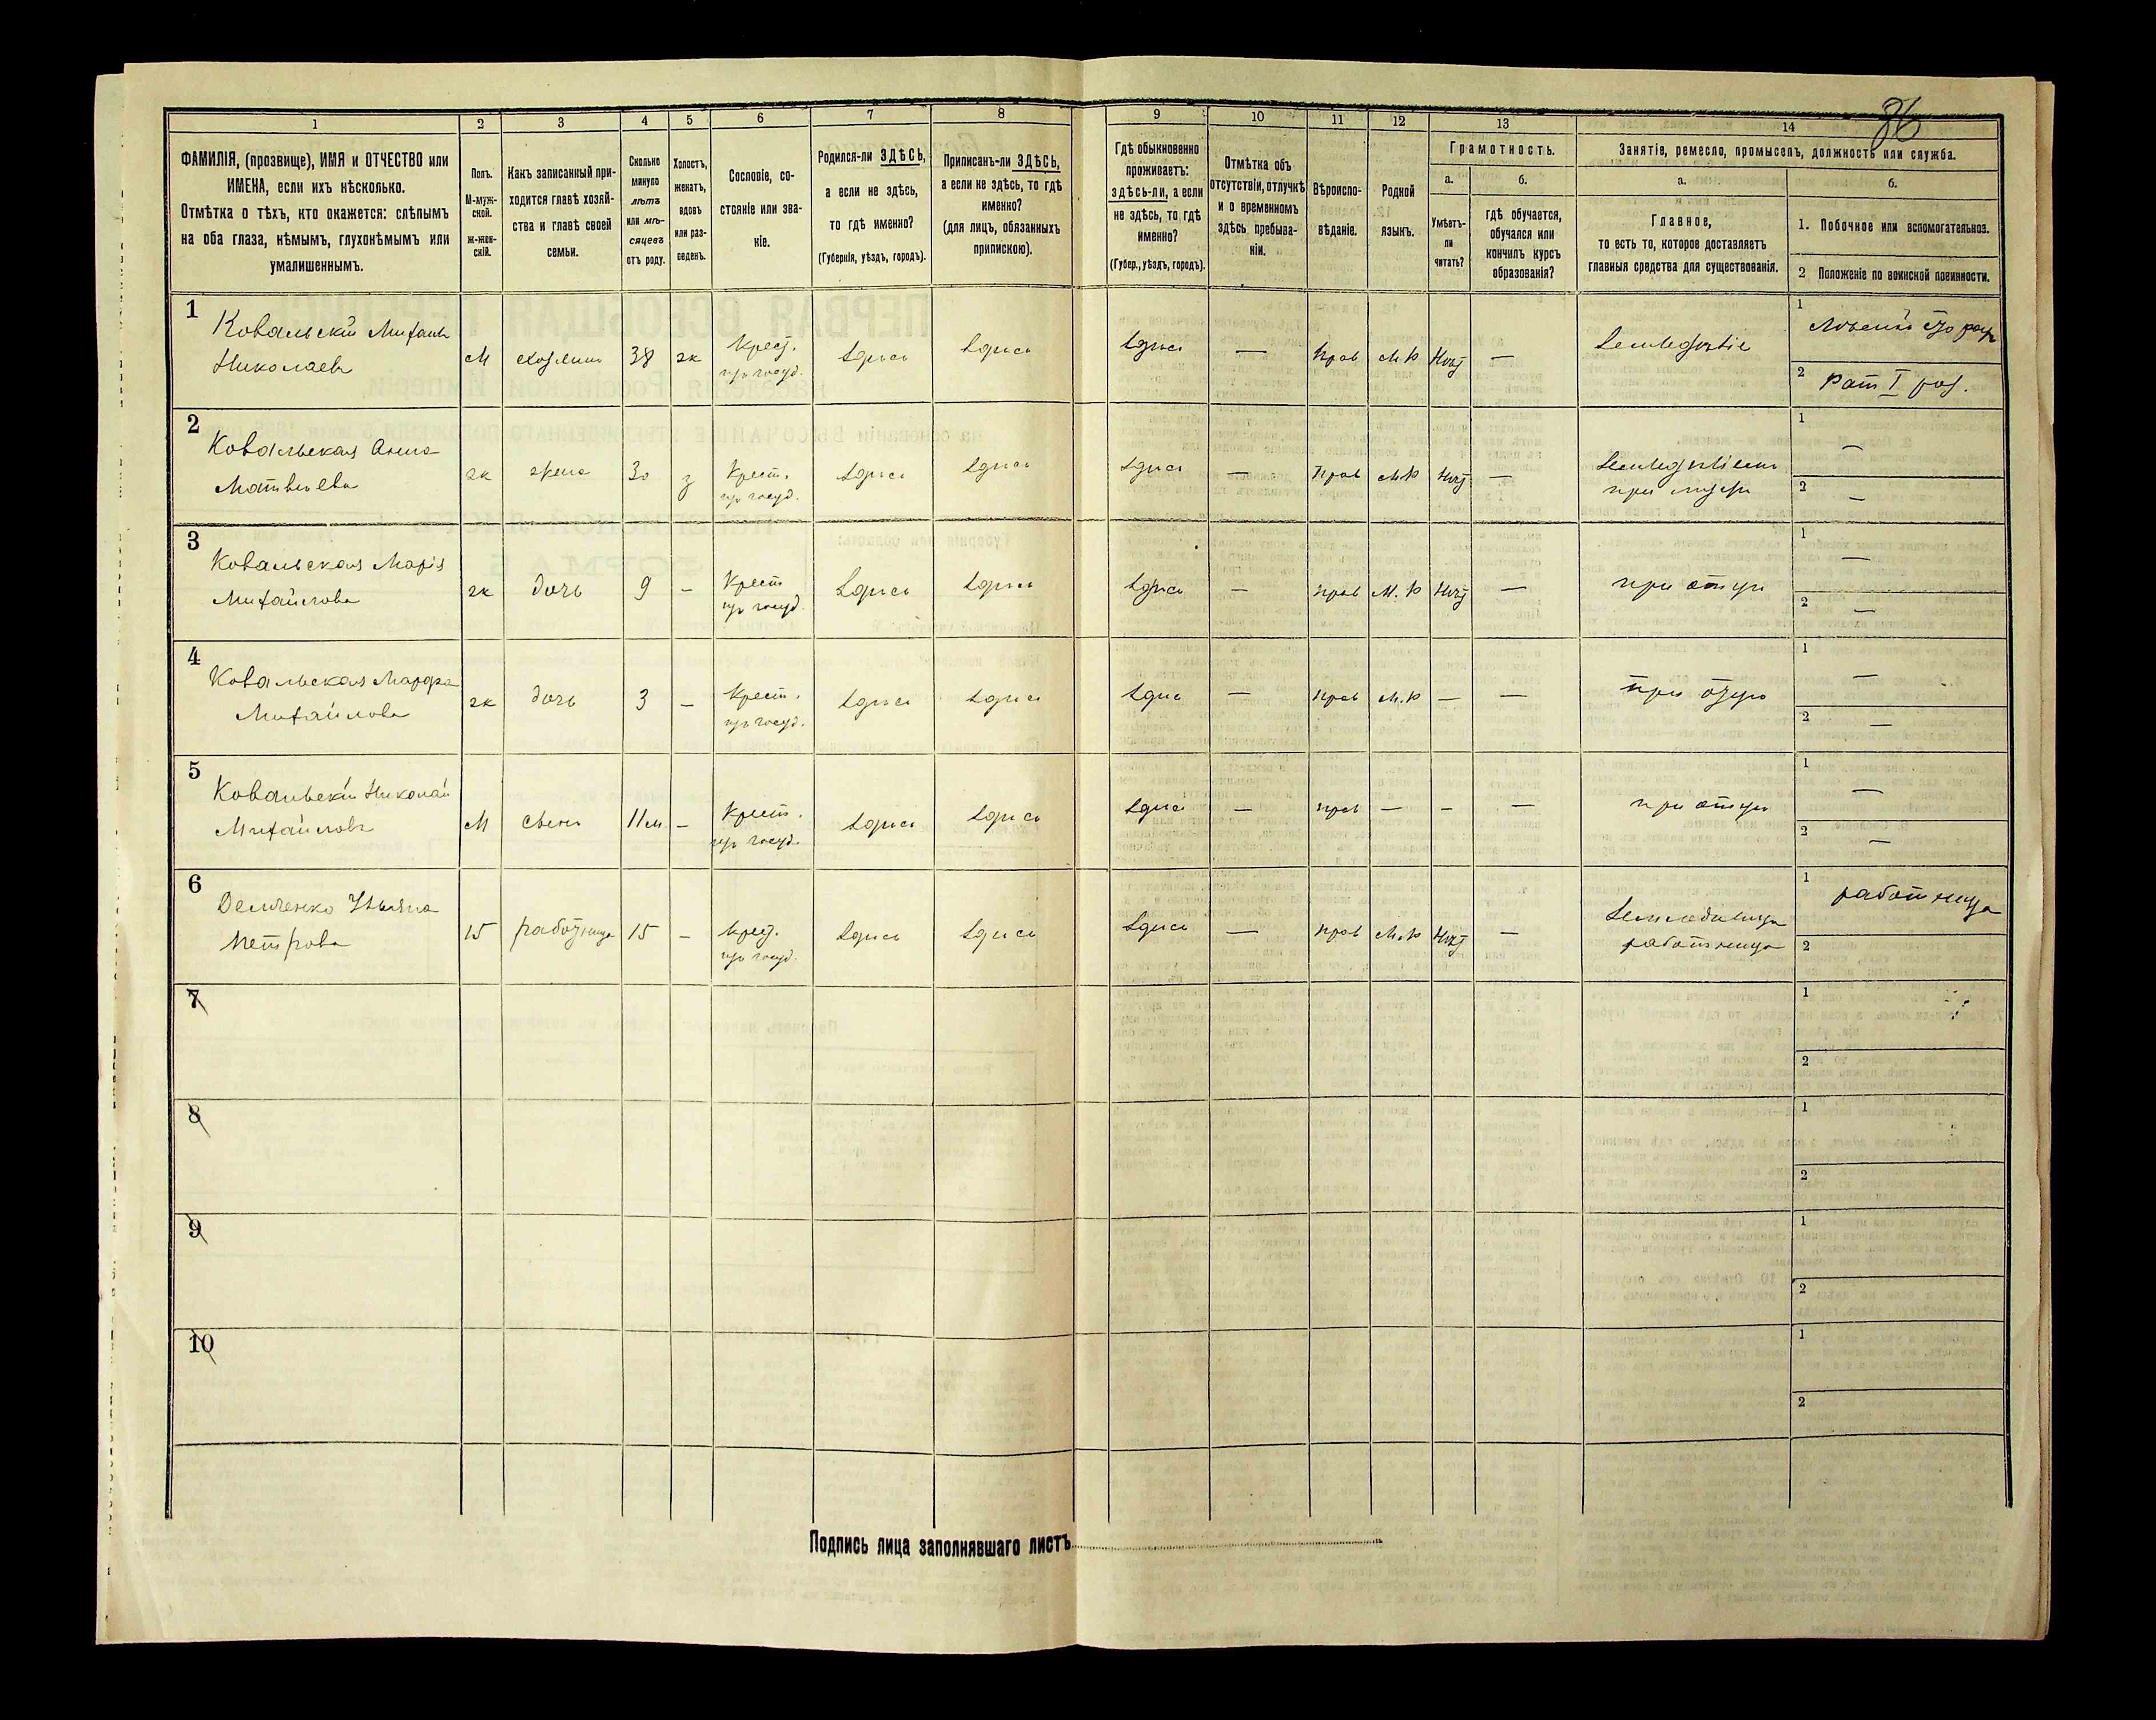 36
1 2 3 4 5 6 7 8 9 10 11 12 13 14
ФАМИЛІЯ, (прозвище), ИМЯ и ОТЧЕСТВО или
ИМЕНА, если ихъ нѣсколько.
Отмѣтка о тѣхъ, кто окажется: слѣпымъ
на оба глаза, нѣмымъ, глухонѣмымъ или
умалишеннымъ.
Полъ.
М-муж-
ской.
ж-жен-
скій.
Какъ записанный при-
ходится главѣ хозяй-
ства и главѣ своей
семьи.
Сколько
минуло
лѣтъ
или мѣ-
сяцевъ
отъ роду.
Холостъ,
женатъ,
вдовъ
или раз-
веденъ.
Сословіе, со-
стояніе или зва-
ніе.
Родился-ли ЗДѢСЬ,
а если не здѣсь,
то гдѣ именно?
(Губернія, уѣздъ, городъ).
Приписанъ-ли ЗДѢСЬ,
а если не здѣсь, то гдѣ
именно?
(для лицъ, обязанныхъ
припискою).
Гдѣ обыкновенно
проживаетъ:
здѣсь-ли, а если
не здѣсь, то гдѣ
именно?
(Губер., уѣздъ, городъ).
Отмѣтка объ
отсутствіи, отлучкѣ
и о временномъ
здѣсь пребыва-
ніи.
Вѣроиспо-
вѣданіе.
Родной
языкъ.
Грамотность.
а.
Умѣетъ-
ли
читать?
б.
гдѣ обучается,
обучался или
кончилъ курсъ
образованія?
Занятіе, ремесло, промыселъ, должность или служба.
а.
Главное,
то есть то, которое доставляетъ
главныя средства для существованія.
б.
1. Побочное или вспомогательное.
2 Положеніе по воинской повинности.
1 Ковальскій Михаилъ
Николаевъ М хозяинъ 38 ж Крест. из госуд. здѣсь здѣсь здѣсь — прав М.Р Нѣт — Земледѣліе
1
2 Рат I раз.
2 Ковальская Анна
Матвѣева ж жена 30 з Крест. из госуд. здѣсь здѣсь здѣсь — прав М.Р Нѣт — Земледѣліем
при мужѣ
1 —
2 —
3 Ковальская Марія
Михайлова ж дочь 9 — Крест из госуд. здѣсь здѣсь здѣсь — прав М.Р Нѣт — при отцѣ
1 —
2 —
4 Ковальская Марфа
Михайлова ж дочь 3 — Крест. из госуд. здѣсь здѣсь здѣсь — прав М.Р — — при отцѣ
1 —
2 —
5 Ковальскій Николай
Михайловъ М сынъ 11м — Крест. из госуд. здѣсь здѣсь здѣсь — прав — — — при отцѣ
1 —
2 —
6 Демченко Ульяна
Петрова 15 работница 15 — Крест. из госуд. здѣсь здѣсь здѣсь — прав М.Р Нѣт —
работница
1 работница
2
7
1
2
8
1
2
9
1
2
10
1
2
Подпись лица заполнявшаго листъ